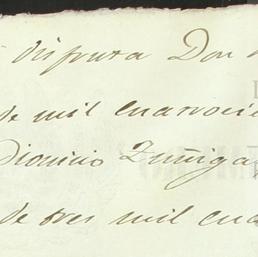 disputa Don
de mil cuatrocie
Dionicio Zuñiga
de tres mil cua